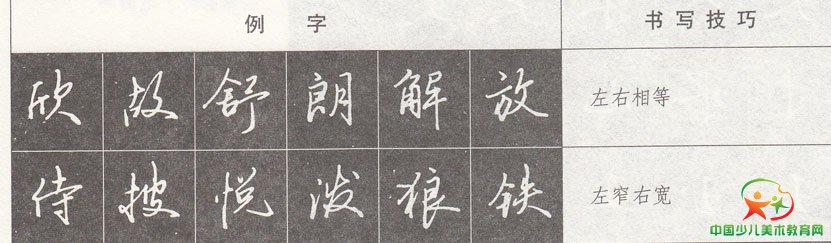 例 字 书写技巧
欣 故 舒 朗 解 放 左右相等
侍 披 悦 泼 狼 铁 左窄右宽
中国少儿美术教育网